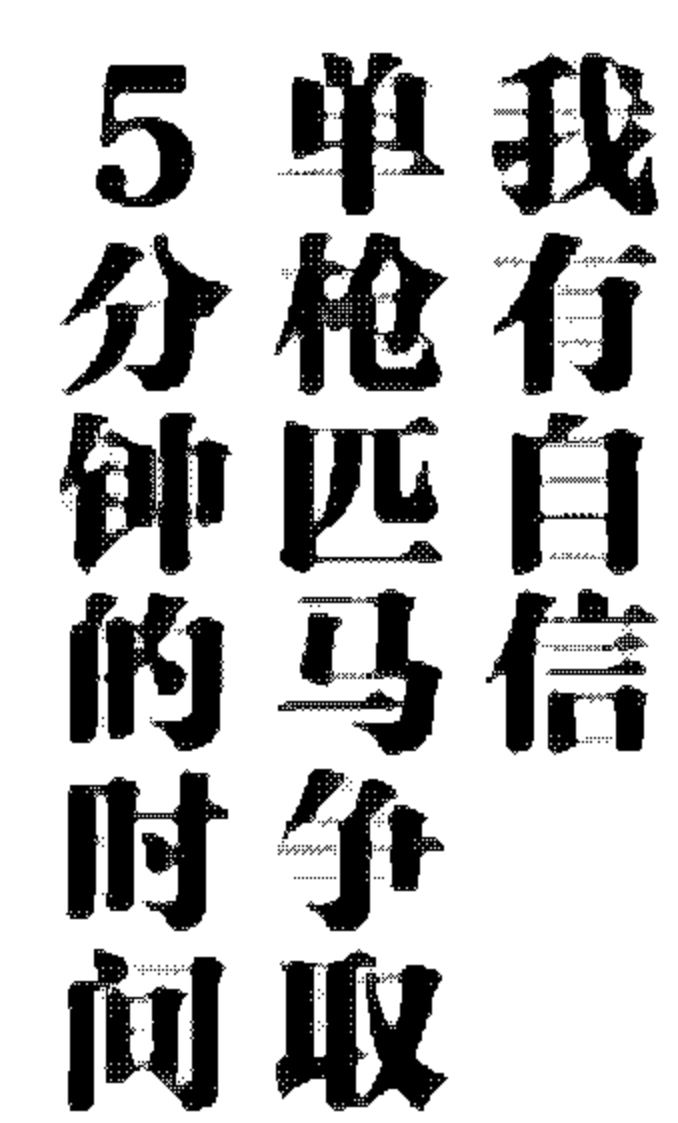 我有自信
单枪匹马争取
5分钟的时间